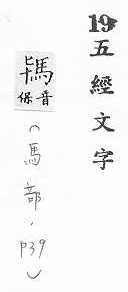 19五經文字
駂音保(馬部,P39)